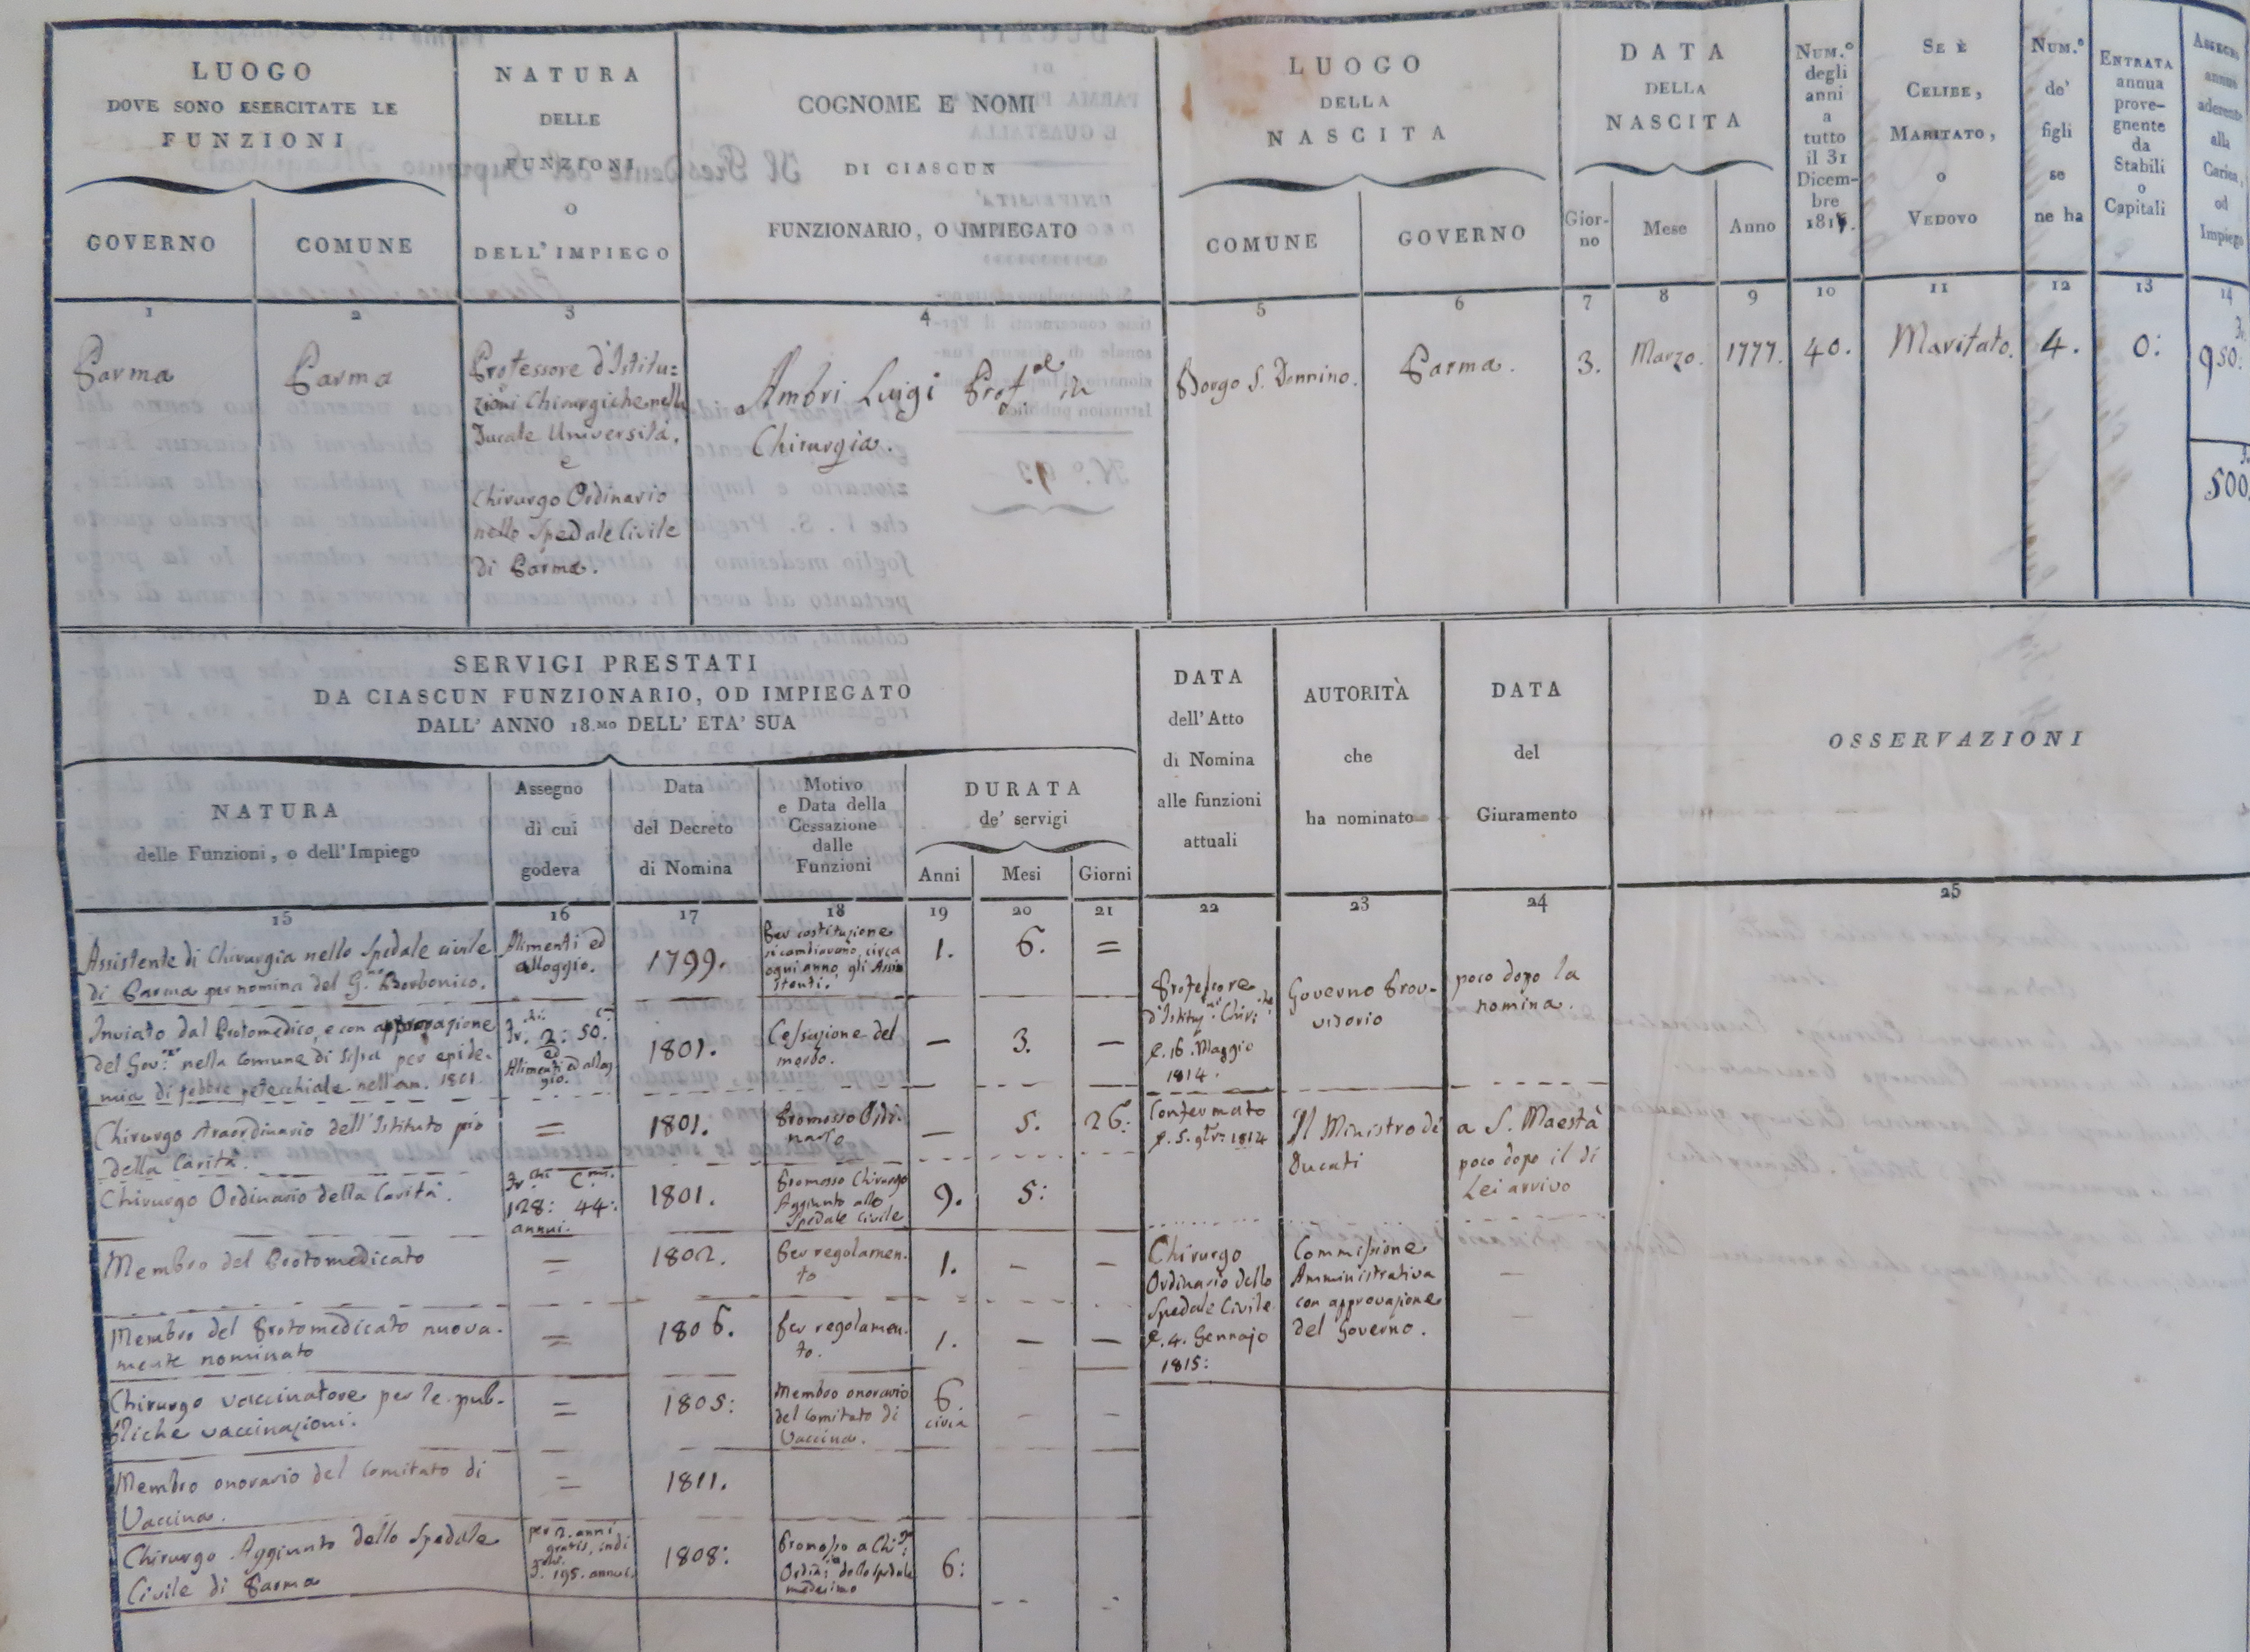 LUOGO
DOVE SONO ESERCITATE LE
FUNZIONI
GOVERNO
COMUNE
NATURA
DELLE
FUNZIONI
O
DELL'IMPIEGO
COGNOME E NOMI
DI CIASCUN
FUNZIONARIO, O IMPIEGATO
LUOGO
DELLA
NASCITA
COMUNE
GOVERNO
DATA
DELLA
NASCITA
Gior-
no
Mese
Anno
NUM.º
degli
anni
a
tutto
il 31
Dicem-
bre
SE È
CELIBE,
MARITATO,
O
VEDOVO
NUM.º
de'
figli
se
ne ha
ENTRATA
annua
prove-
gnente
da
Stabili
o
Capitali
ASSEGNO
annuo
aderente
alla
Carica,
od
Impiego
1 2 3 4 5 6 7 8 9 10 11 12 13 14
Parma
Parma
Professore d'Istitu=
zioni Chirurgiche nella
Ducale Università,
e
Chirurgo Ordinario
nello Spedale Civile
di Parma.
Ambri Luigi Prof.re in
Chirurgia.
Borgo S. Donnino.
Parma.
3.
Marzo.
1777.
40.
Maritato.
4.
0:
950:
500
SERVIGI PRESTATI
DA CIASCUN FUNZIONARIO, OD IMPIEGATO
DALL' ANNO 18.MO DELL' ETA' SUA
NATURA
delle Funzioni, o dell'Impiego
Assegno
di cui
godeva
Data
del Decreto
di Nomina
Motivo
e Data della
Cessazione
dalle
Funzioni
DURATA
de' servigi
Anni
Mesi
Giorni
DATA
dell'Atto
di Nomina
alle funzioni
attuali
AUTORITÀ
che
ha nominato
DATA
del
Giuramento
OSSERVAZIONI
15 16 17 18 19 20 21 22 23 24 25
Assistente di Chirurgia nello Spedale civile
di Parma per nomina del G.no Borbonico.
Alimenti ed
alloggio.
1799.
Per costituzione
si cambiavano, circa
ogni anno, gli Assi
stenti.
1.
6.
=
Inviato dal Protomedico, e con approvazione
del Gov.no nella Comune di Sissa per epide-
mia di febbre petecchiale nell'an. 1801
Fr.chi 2: 50. c.mi
ed
Alimenti ed allog
gio.
1801.
Cessazione del
morbo.
—
3.
—
Chirurgo straordinario dell'Istituto pio
della Carità.
=
1801.
Promosso Ordi-
nario
—
5.
26:
Chirurgo Ordinario della Carità.
Fr.chi C.mi
128: 44:
annui.
1801.
Promosso Chirurgo
Aggiunto allo
Spedale Civile
9.
5:
Membro del Protomedicato
=
1802.
Per regolamen-
to
1.
-
-
Membro del Protomedicato nuova-
mente nominato
=
1806.
Per regolamen-
to.
1.
—
—
Chirurgo vaccinatore per le pub-
bliche vaccinazioni.
=
1805:
Membro onorario
del Comitato di
Vaccina.
6.
circa
-
-
Membro onorario del Comitato di
Vaccina.
=
1811.
Chirurgo Aggiunto dello Spedale
Civile di Parma
per 2. anni
gratis, indi
195. annui.
1808:
Promosso a Chi.go
Ordin: dello Spedale
medesimo
6:
Professore
d'Istituz.ni Chir.che
16. Maggio
1814.
Governo Prov-
visorio
poco dopo la
nomina.
Confermato
1814
Il Ministro de
Ducati
a S. Maestà
poco dopo il di
Lei arrivo
Chirurgo
Ordinario dello
Spedale Civile
4. Gennajo
1815:
Commissione
Amministrativa
con approvazione
del Governo.
—